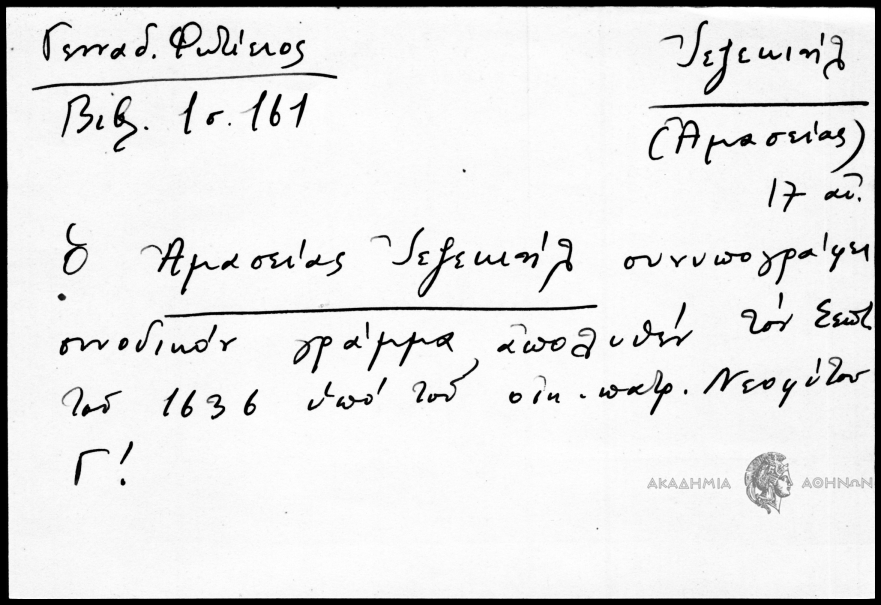 Γενναδ. Φωτίειος
Βιβλ. 1 σ. 161
Ἰεζεκιήλ
(Ἀμασείας)
17 αἰ.
Ὁ Ἀμασείας Ἰεζεκιήλ συνυπογράφει
συνοδικόν γράμμα, ἀπολυθέν τόν Σεπτ
τοῦ 1636 ὑπό τοῦ οἰκ. πατρ. Νεοφύτου
Γ!
ΑΚΑΔΗΜΙΑ ΑΘΗΝΩΝ